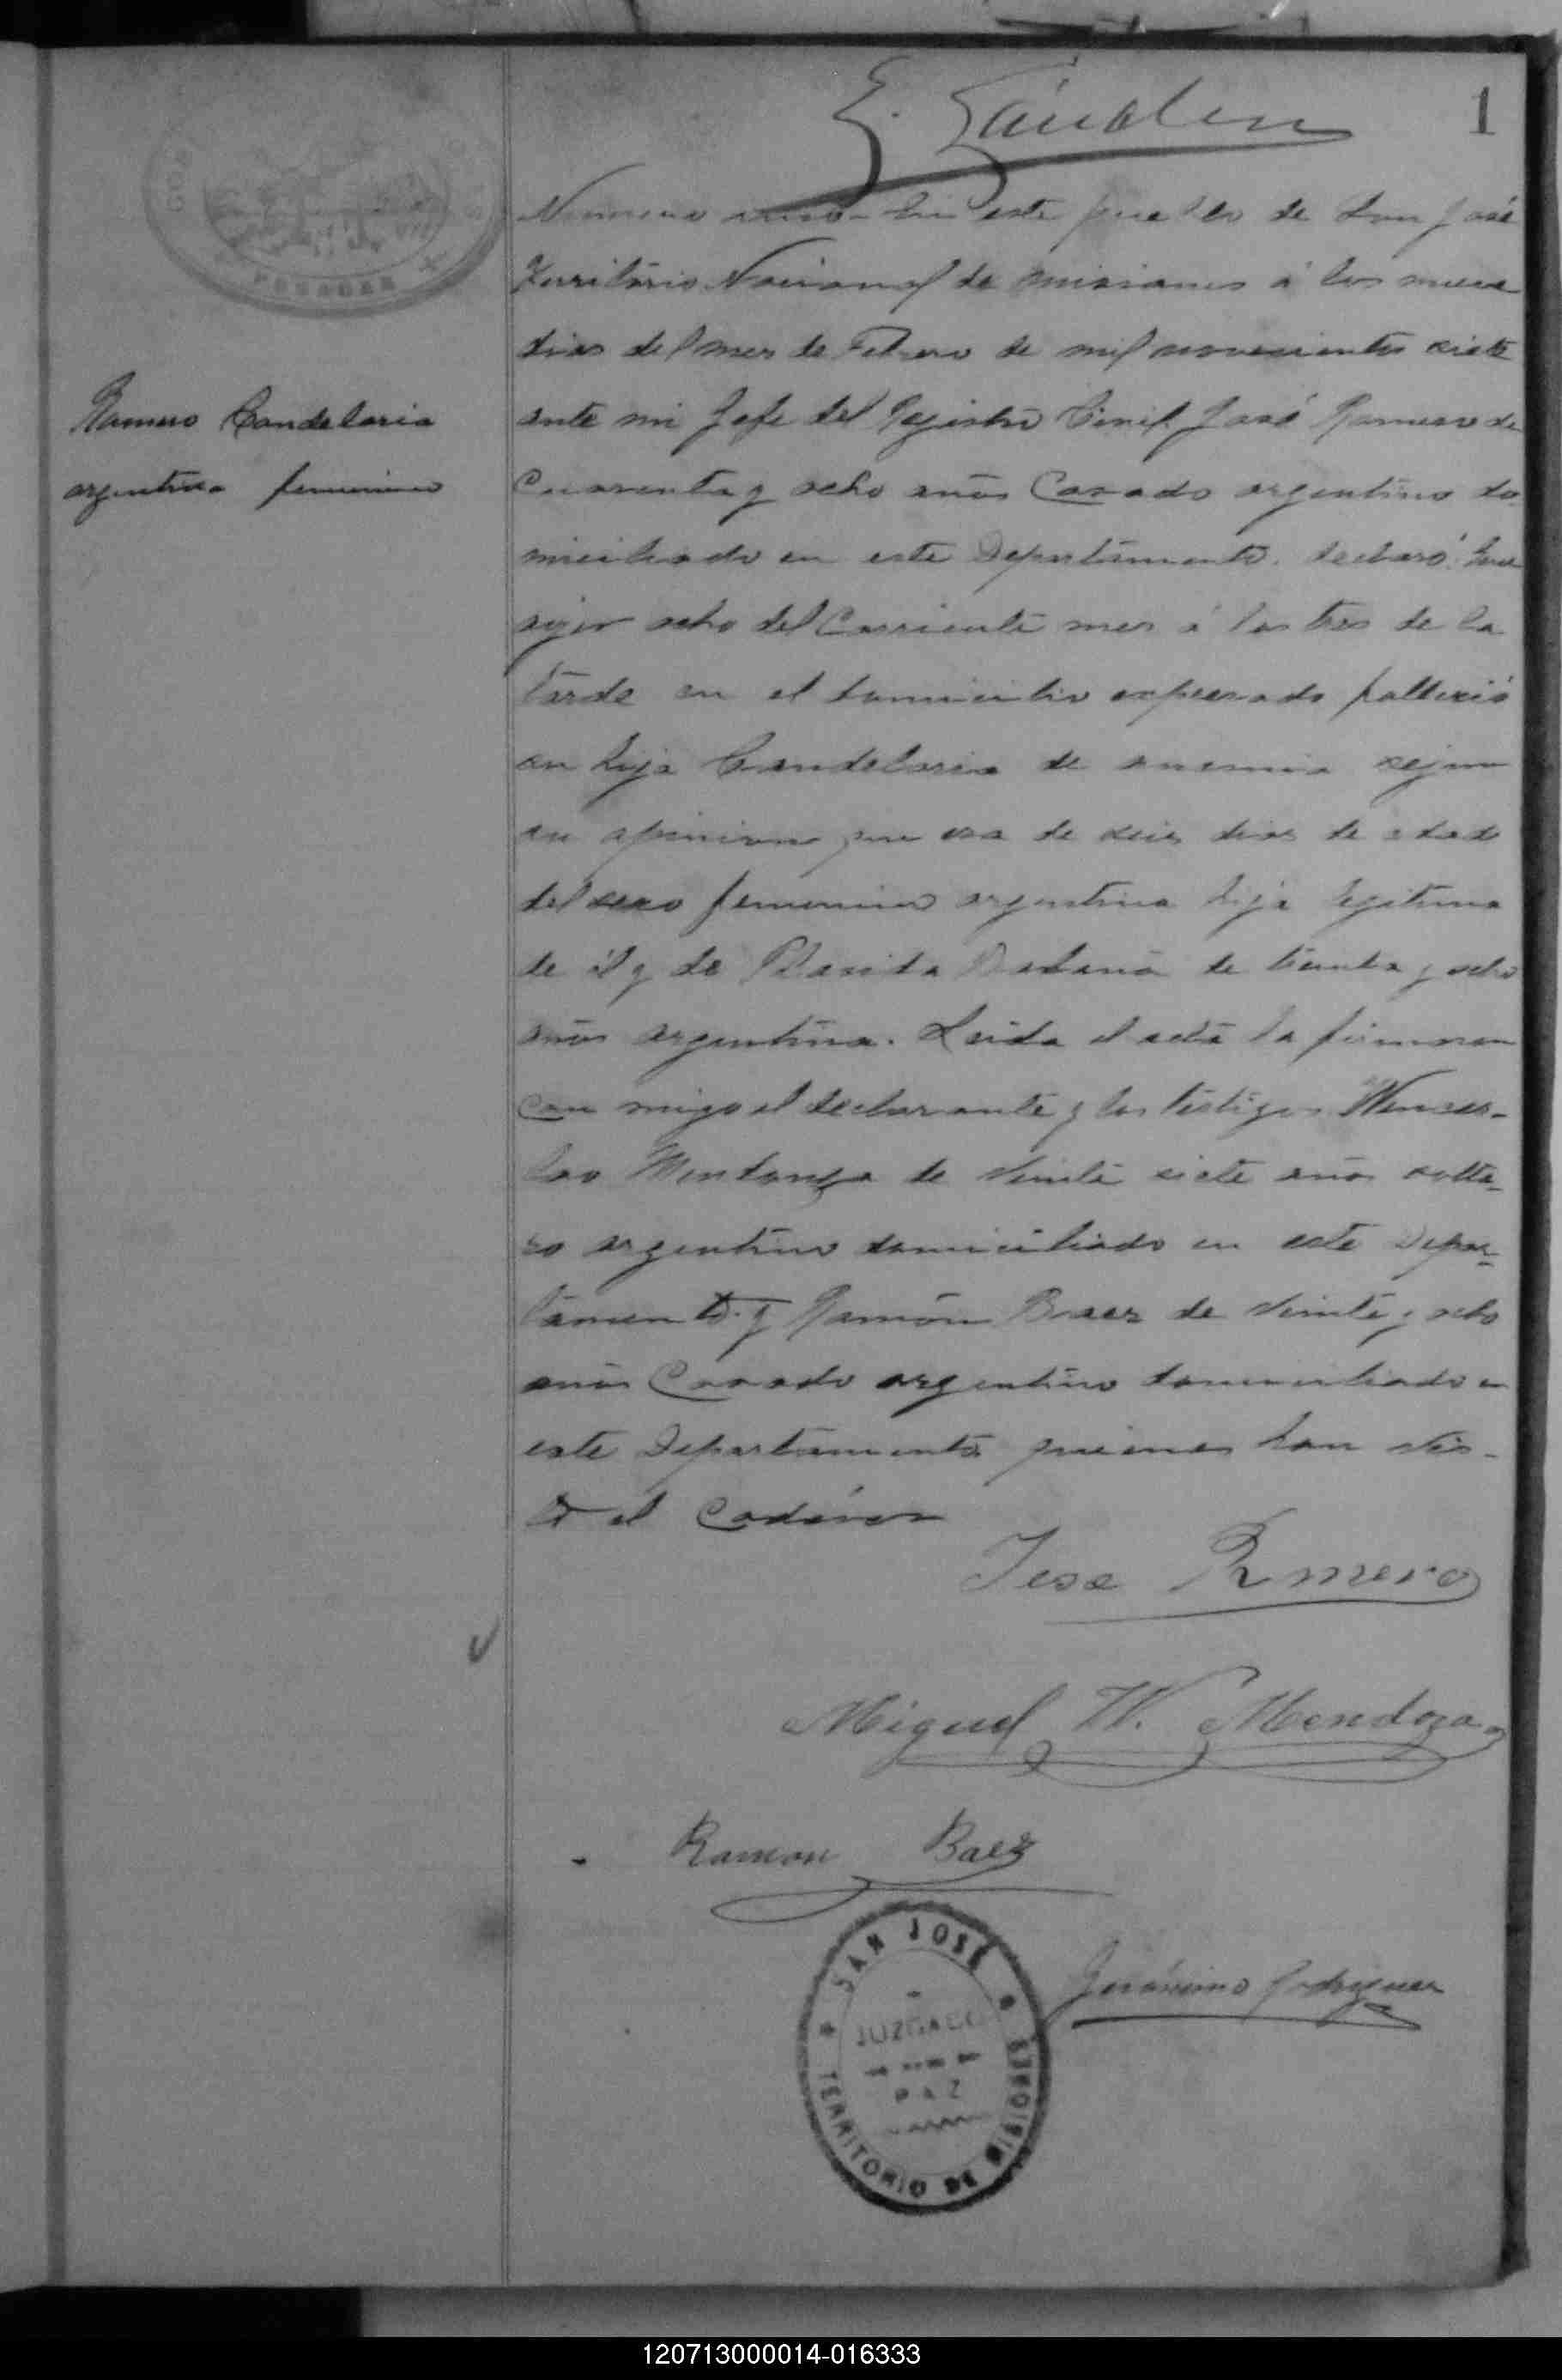 1
Numero uno – En este pueblo de San José
Territorio Nacional de Misiones á los nueve
dias del mes de Febrero de mil novecientos siete
ante mi Jefe del Registro Civil. José Romero de
Romero Candelaria
argentina femenino
Cuarenta y ocho años Casado argentino do-
miciliado en este Departamento. declaró: Que
ayer ocho del Corriente mes á las tres de la
tarde en el domicilio expresado falleció
su hija Candelaria de anemia segun
su opinion que era de seis dias de edad
del sexo femenino argentina hija legitima
de él y de de treinta y ocho
años argentina. Leida el acta la firmaron
con migo el declarante y los testigos Wences-
lao Mendoza de veinte siete años solte-
ro argentino domiciliado en este Depar-
tamento. y Ramón Baez de veinte y ocho
años Casado argentino domiciliado en
este Departamento quienes han vis-
to el Cadáver
Jose Romero
Miguel W. Mendoza
Ramon Baez
Gerónimo Rodriguez
SAN JOSÉ
JUZGADO
PAZ
TERRITORIO DE MISIONES
POSADAS
120713000014-016333